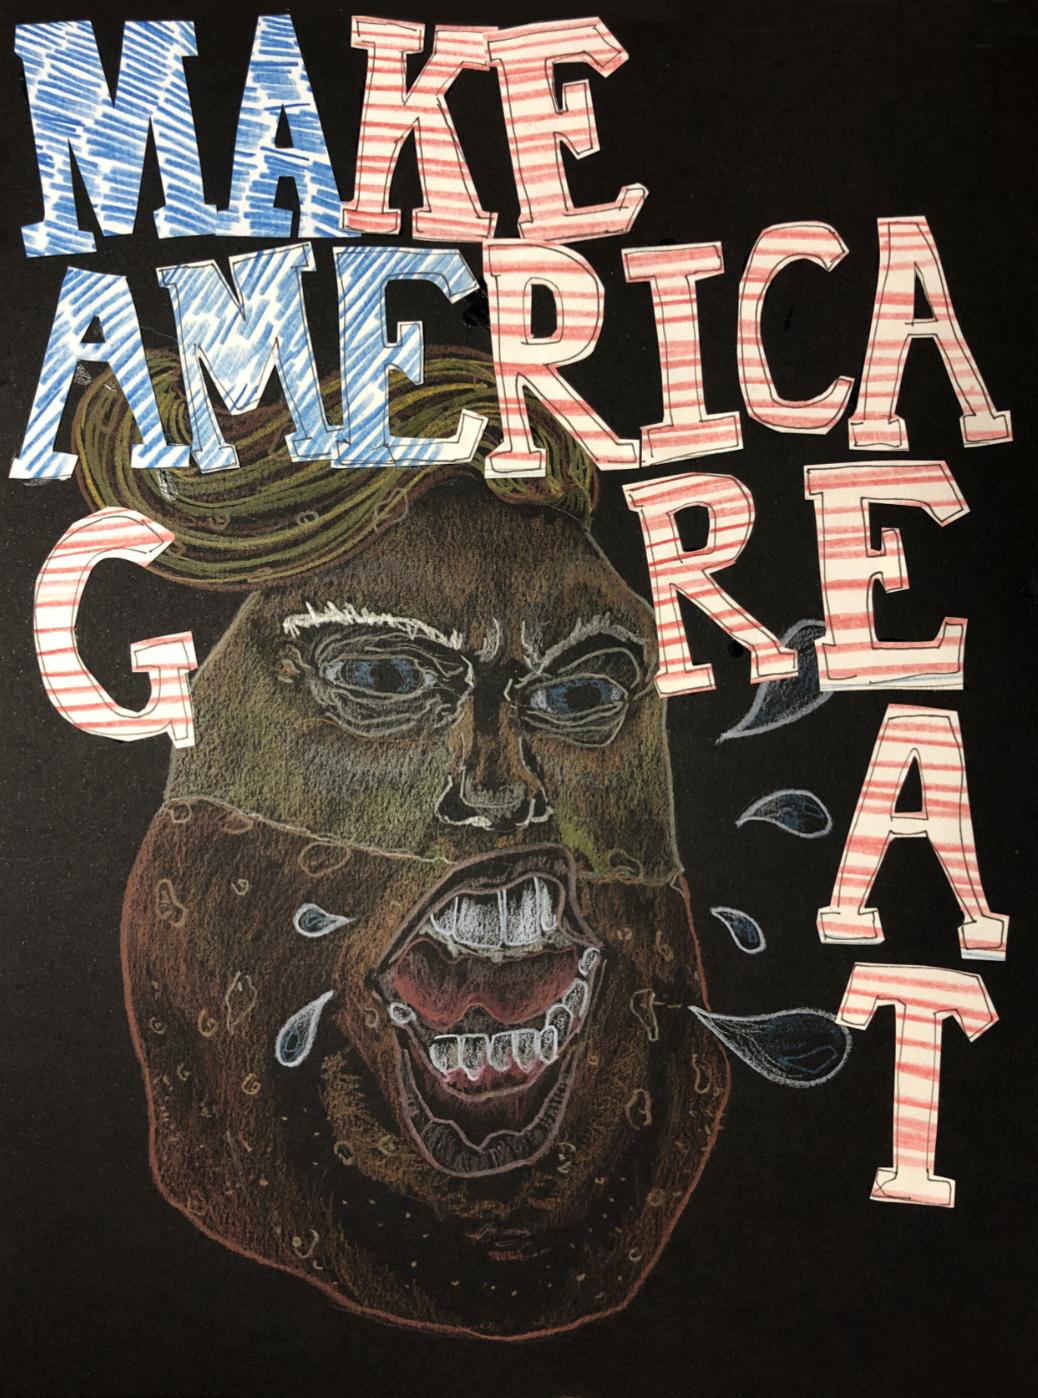 MAKE
AMERICA
GREAT